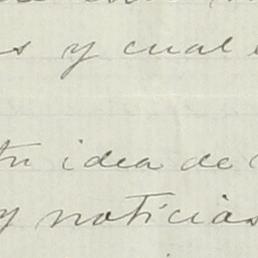 y cual
tu idea de
y noticias